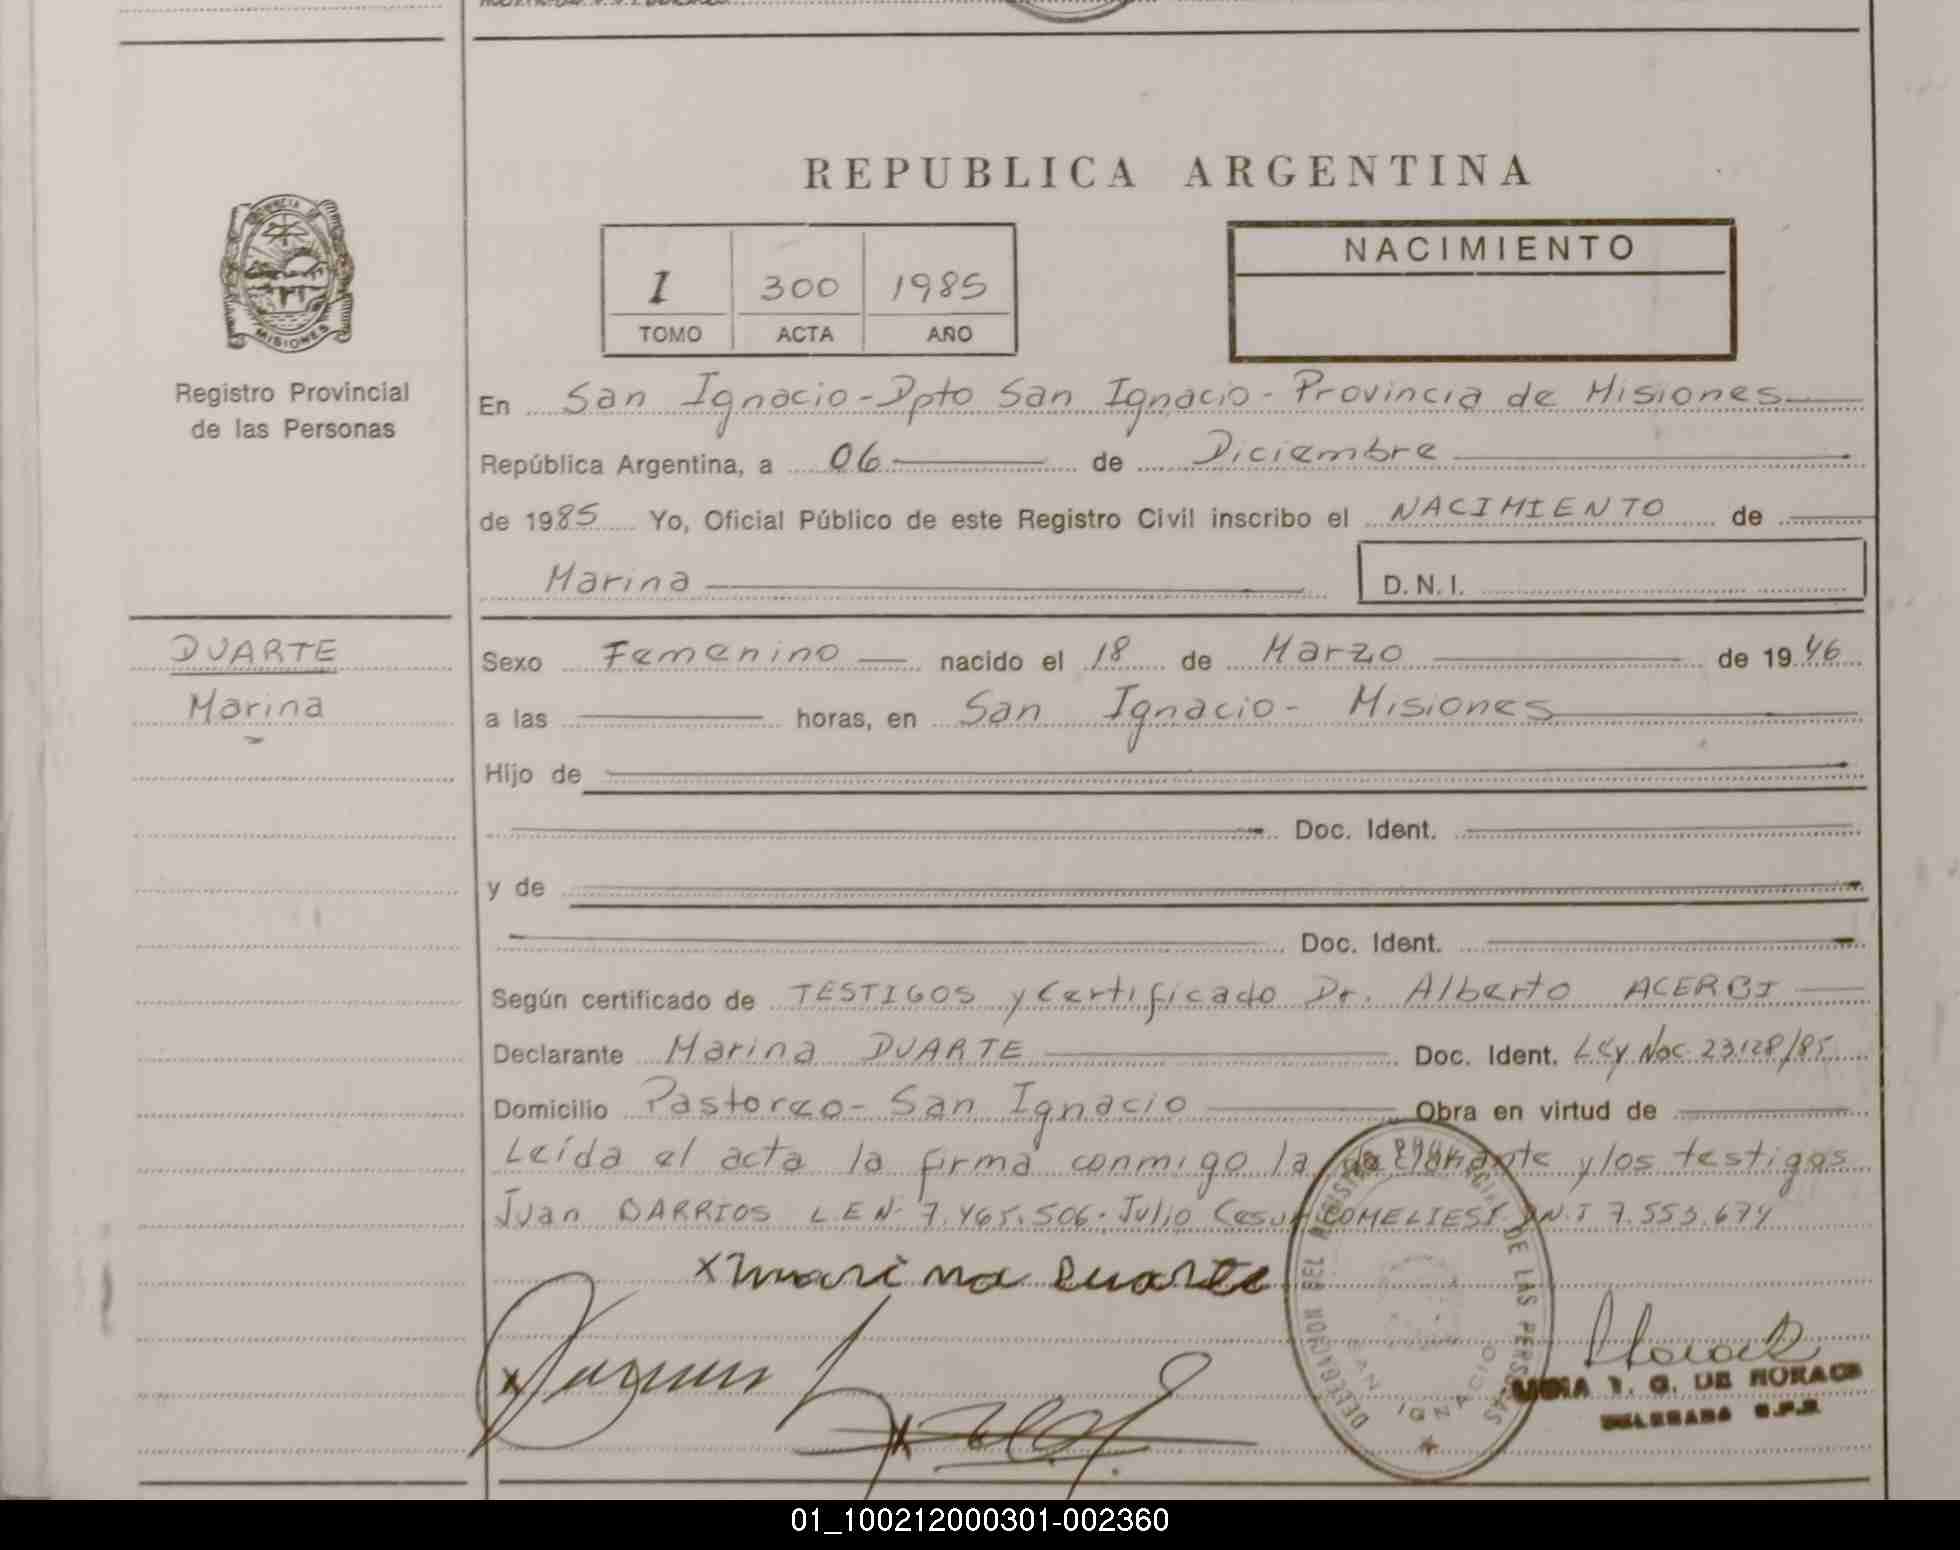 REPUBLICA ARGENTINA
PROVINCIA DE MISIONES
Registro Provincial
de las Personas
I 300 1985
TOMO ACTA AÑO
NACIMIENTO
En San Ignacio-Dpto San Ignacio-Provincia de Misiones
República Argentina, a 06 de Diciembre
de 1985 Yo, Oficial Público de este Registro Civil inscribo el NACIMIENTO de
Marina D.N.I.
DUARTE
Marina
Sexo Femenino nacido el 18 de Marzo de 1946
a las horas, en San Ignacio- Misiones
Hijo de
Doc. Ident.
y de
Doc. Ident.
Según certificado de TESTIGOS y Certificado Dr. Alberto ACERBI
Declarante Marina DUARTE Doc. Ident. Ley Nac 23.128/85
Domicilio Pastoreo- San Ignacio Obra en virtud de
Leída el acta la firma conmigo la declarante y los testigos
Juan BARRIOS L.E Nº 7.465.506. Julio Cesar D.N.I 7.553.674
x marina Duarte
DELEGACION DEL REGISTRO PROVINCIAL DE LAS PERSONAS
SAN IGNACIO
T. G. DE HORACK
DELEGADA R.P.P.
01_100212000301-002360